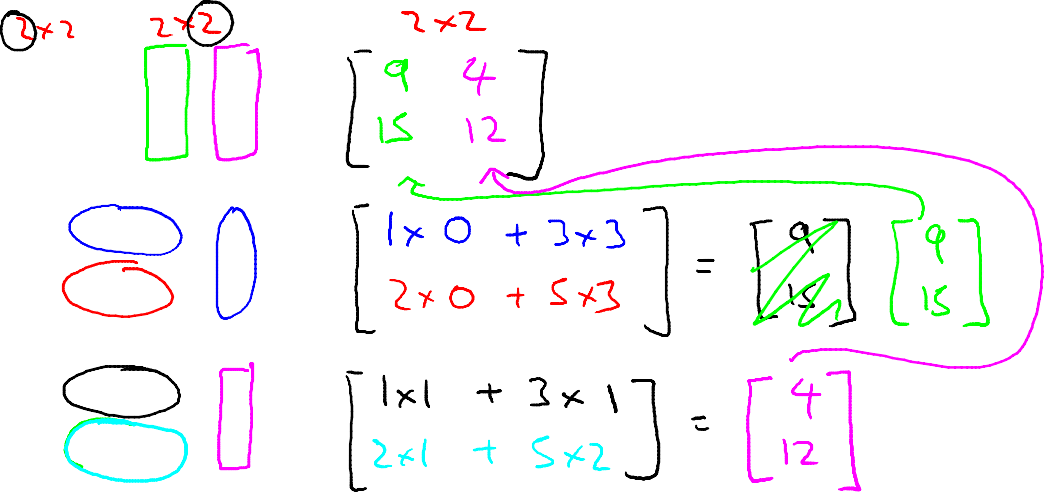 2×2 2×2 2×2
9 4
15 12
1×0 + 3×3 = 9 9
2×0 + 5×3 15 15
1×1 + 3×1 = 4
2×1 + 5×2 12